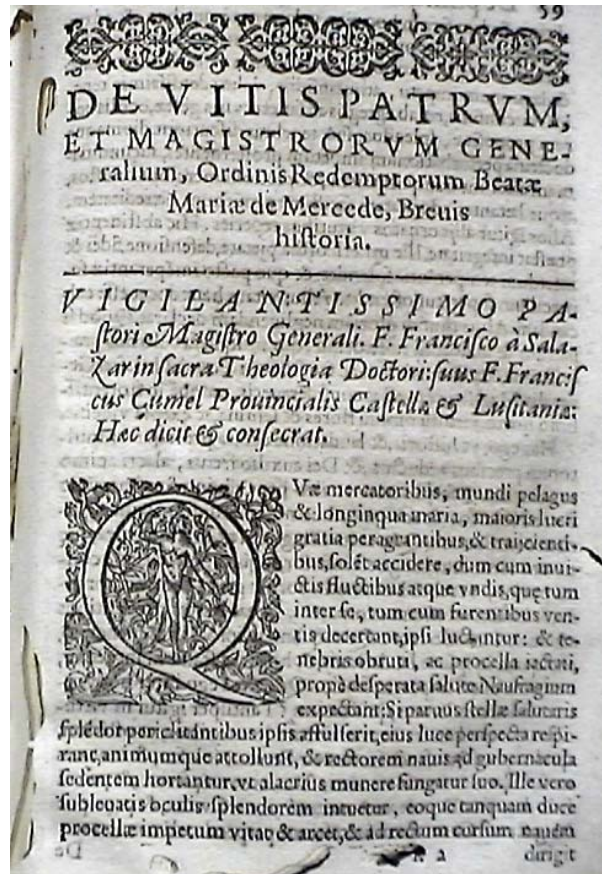 59
DE VITIS PATRVM,
ET MAGISTRORVM GENE-
ralium, Ordinis Redemptorum Beatæ
Mariæ de Mercede, Breuis
historia.
VIGILANTISSIMO PA-
stori Magistro Generali. F. Francisco à Sala-
zar in sacra Theologia Doctori: suus F. Francis
cus Cumel Prouincialis Castellæ & Lusitaniæ:
Hæc dicit & consecrat.
QVæ mercatoribus, mundi pelagus
& longinqua maria, maioris lucri
gratia peragrantibus, & traijcienti-
bus, solēt accidere, dum cum inui-
ctis fluctibus atque vndis, quę tum
inter se, tum cum furentibus ven-
tis decertant, ipsi luctantur: & te-
nebris obruti, ac procella iactati,
propè desperata salute Naufragium
expectant: Si paruus stellæ salutaris
splēdor periclitantibus ipsis affulserit, eius luce perspecta respi-
rant, animumque attollunt, & rectorem nauis ad gubernacula
sedentem hortantur, vt alacrius munere fungatur suo. Ille vero
subleuatis oculis splendorem intuetur, eoque tanquam duce
procellæ impetum vitat & arcet, & ad rectum cursum nauem
dirigit